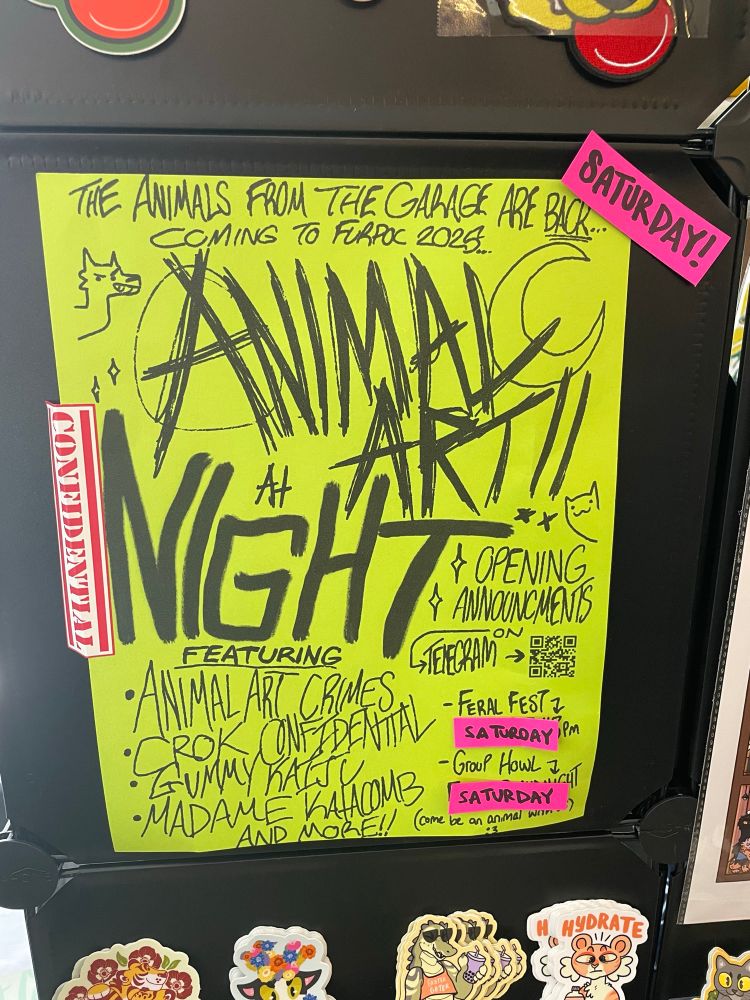 SATURDAY!
THE ANIMALS FROM THE GARAGE ARE BACK...
COMING TO FURPOC 2025...
ANIMAL
ART!!
AT
NIGHT
CONFIDENTIAL
OPENING
ANNOUNCMENTS
ON
TELEGRAM →
FEATURING
• ANIMAL ART CRIMES
• CROK CONFIDENTIAL
• GUMMY KAIJU
• MADAME KATACOMB
AND MORE!!
- FERAL FEST
SATURDAY PM
- GROUP HOWL
SATURDAY
(come be an animal with
:3
HYDRATE
GATOR